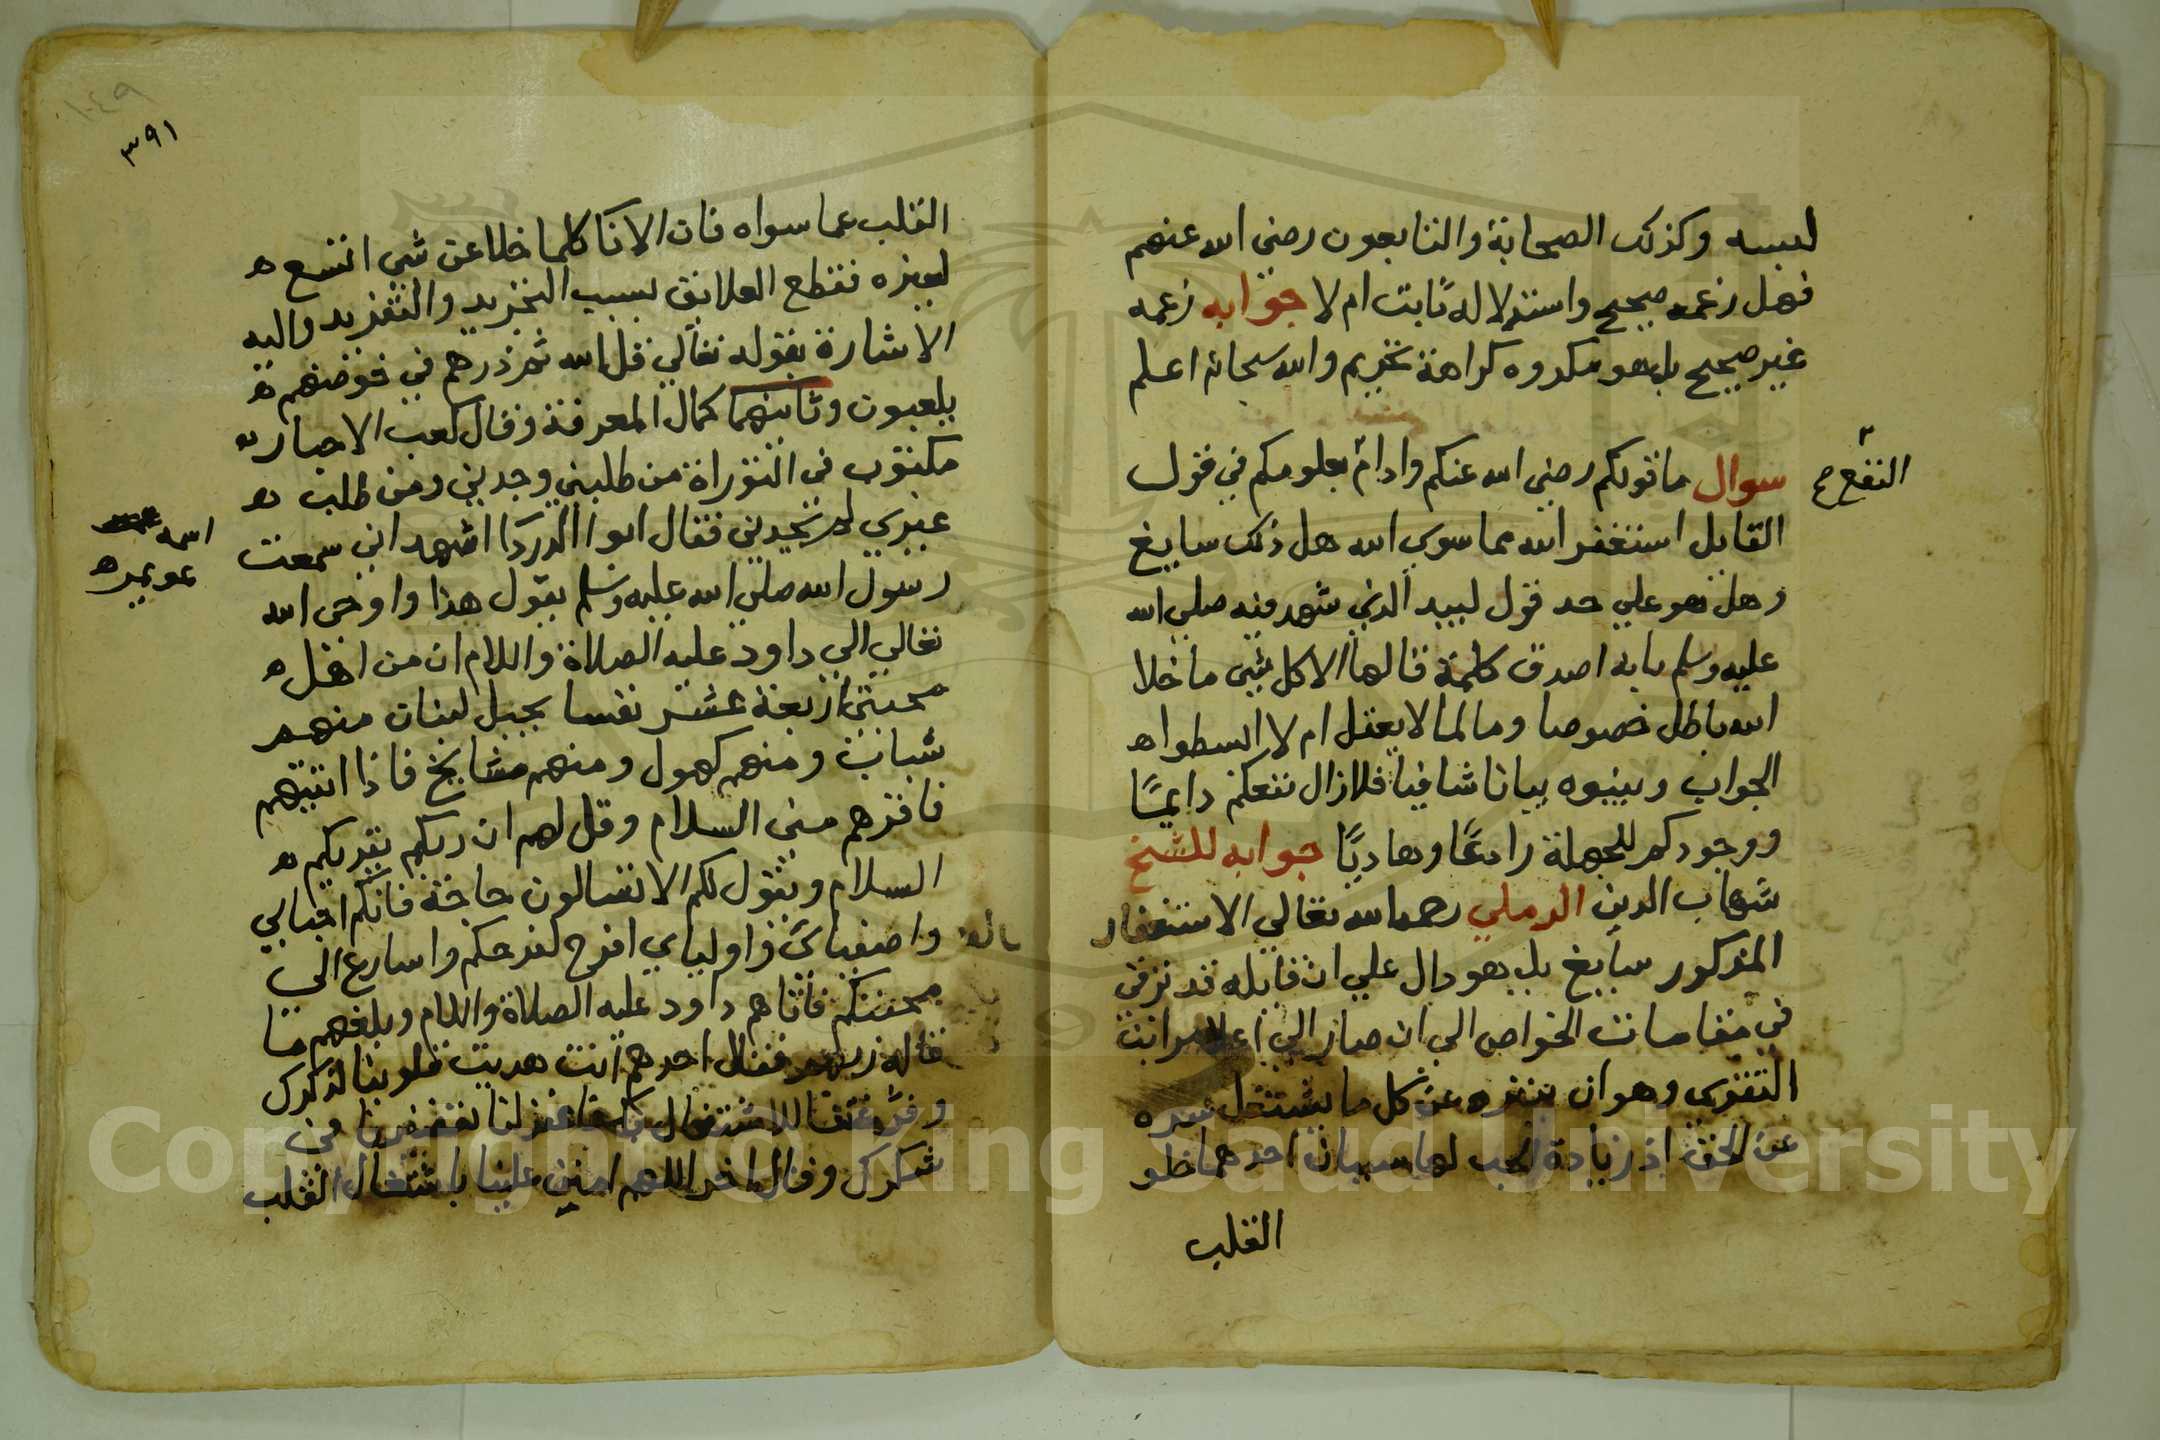 لبسه وكذلك الصحابة والتابعون رضي الله عنهم
فهل زعمه صحيح واستدلاله ثابت ام لا جوابه زعمه
غير صحيح بل هو مكروه كراهة تحريم والله سبحانه اعلم
سوال ما قولكم رضي الله عنكم وادام بعلومكم في قول
النفع ٢
القايل استغفر الله مما سوي الله هل ذلك سايغ
وهل هو علي حد قول لبيد الذي شهد فيه صلي الله
عليه وسلم بانه اصدق كلمة قالها الا كل شي ما خلا
الله باطل خصوصا وما لما لا يعقل ام لا ابسطوا ه
الجواب وبينوه بيانا شافيا فلا زال نفعكم دايمًا
ووجودكم للجهلة رادعًا وهاديًا جوابه للشيخ
شهاب الدين الرملي رحمه الله تعالي الاستغفار
المذكور سايغ بل هو دال علي ان قايله قد ترقي
في مقامات الخواص الي ان صار الي اعلا مراتب
التقوي وهو ان يتنزه عن كل ما يشتغل سره
عن الحق اذ زيادة الحب لها سببان احدهما خلو
القلب
٣٩١
القلب عما سواه فان الانا كلما خلا عن شي اتسع ه
لغيره فقطع العلايق بسبب التجريد والتفريد واليه
الاشارة بقوله تعالي قل الله ثم ذرهم في خوضهم ه
يلعبون وثانيهما كمال المعرفة وقال كعب الاحبار
مكتوب في التوراة من طلبني وجدني ومن طلب ه
غيري لم يجدني فقال ابوا الدردا اشهد اني سمعت
اسمه
عويمر ه
رسول الله صلي الله عليه وسلم يقول هذا واوحي الله
تعالي الي داود عليه الصلاة والسلام ان من اهل ه
محبتي اربعة عشر نفسا بجبل لبنان منهم
شباب ومنهم كهول ومنهم مشايخ فاذا اتيتهم
فاقرهم مني السلام وقل لهم ان ربكم يقريكم ه
السلام ويقول لكم الا تسالون حاجة فانكم احبابي
واصفيائي واوليايي افرح لفرحكم واسارع الي
محبتكم فاتاهم داود عليه الصلاة والسلام وبلغهم ما
قاله ربهم فقال احدهم انت هديت قلوبنا لذكرك
وفرغتنا للاشتغال بك فاغفر لنا تقصيرنا في
شكرك وقال اخر اللهم امنن علينا باشتغال القلب
Copyright © King Saud University